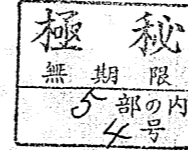 極秘
無期限
5部の内
4号